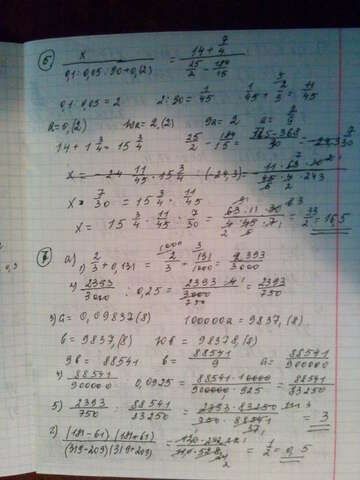 б) x / (0,1 : 0,05 : 90 + 0,(2)) = (14 + 7/4) / (25/2 - 184/15)
0,1 : 0,05 = 2   2 : 90 = 1/45   1/45 + 2/9 = 11/45
a = 0,(2)   10a = 2,(2)   9a = 2   a = 2/9
14 + 1 3/4 = 15 3/4   25/2 - 184/15 =
x · 7/30 = 15 3/4 · 11/45
x = 15 3/4 · 11/45 : 7/30 = 63 · 11 · 30 / 4 · 45 · 7 = 33/2 = 16,5
а) 1) 2/3 + 0,131 = 2/3 + 131/1000 = 2393/3000
2393/3000 : 0,25 = 2393 · 4 / 3000 = 2393/750
3) a = 0,09837(8)   100000a = 9837,(8)
b = 9837,(8)   10b = 98378,(8)
9b = 88541   b = 88541/9   a = 88541/900000
4) 88541/900000 : 0,0925 = 88541 · 10000 / 900000 · 925 = 88541/83250
5) 2393/750 : 88541/83250 = 2393 · 83250 / 750 · 88541 = 3
(181-61)(181+61) / (319-209)(319+209) = 1/2 = 0,5